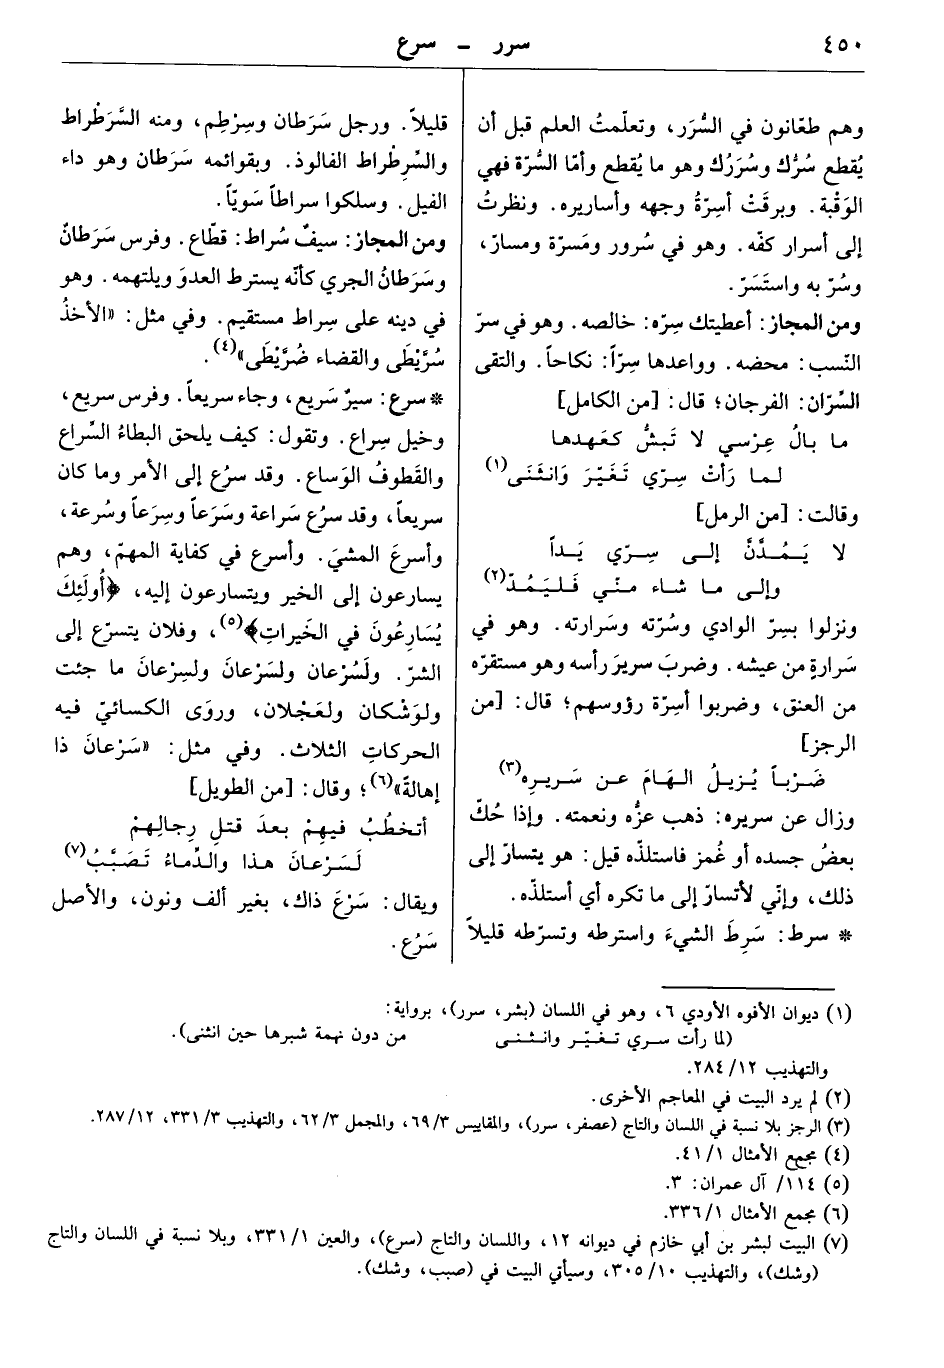 ٤٥٠
سرر - سرع
وهم طعّانون في السُّرَر، وتعلّمتُ العلم قبل أن
يُقطع سُرُّك وسُرَرُك وهو ما يُقطع وأمّا السُّرّة فهي
الوَقْبة. وبرقَتْ أسِرّةُ وجهه وأساريره. ونظرتُ
إلى أسرار كفّه. وهو في سُرور ومَسرّة ومسارّ،
وسُرّ به واستَسَرّ.
ومن المجاز: أعطيتك سِرّه: خالصه. وهو في سرّ
النّسب: محضه. وواعدها سِرّاً: نكاحاً. والتقى
السِّرّان: الفرجان؛ قال: [من الكامل]
ما بالُ عِرْسي لا تَبشُّ كعَهدها
لما رَأتْ سِرّي تَغَيّرَ وَانثَنَى(١)
وقالت: [من الرمل]
لا يَمُدَّنَّ إلى سِرّي يَداً
وإلى ما شاء منّي فَليَمُدّ(٢)
ونزلوا بسِرّ الوادي وسُرّته وسَرارته. وهو في
سَرارةٍ من عيشه. وضربَ سريرَ رأسه وهو مستقرّه
من العنق، وضربوا أسِرّة رؤوسهم؛ قال: [من
الرجز]
ضَرْباً يُزيلُ الهَامَ عن سَريرِه(٣)
وزال عن سريره: ذهب عزُّه ونعمته. وإذا حُكّ
بعضُ جسده أو غُمز فاستلذّه قيل: هو يتسارّ إلى
ذلك، وإنّي لأتسارّ إلى ما تكره أي أستلذّه.
* سرط: سَرِطَ الشيءَ واسترطه وتسرّطه قليلاً
قليلاً. ورجل سَرَطان وسِرْطِم، ومنه السَّرَطْراط
والسِّرِطْراط الفالوذ. وبقوائمه سَرَطان وهو داء
الفيل. وسلكوا سراطاً سَويّاً.
ومن المجاز: سيفٌ سُراط: قطّاع. وفرس سَرَطانٌ
وسَرَطانُ الجري كأنّه يسترط العدوَ ويلتهمه. وهو
في دينه على سِراط مستقيم. وفي مثل: «الأخذُ
سُرَّيْطَى والقضاء ضُرَّيْطَى»(٤).
* سرع: سيرٌ سَريع، وجاء سريعاً. وفرس سريع،
وخيل سِراع. وتقول: كيف يلحق البطاءُ السِّراع
والقَطوفُ الوَساع. وقد سرُع إلى الأمر وما كان
سريعاً، وقد سرُع سَراعة وسَرَعاً وسِرَعاً وسُرعة،
وأسرعَ المشيَ. وأسرع في كفاية المهمّ، وهم
يسارعون إلى الخير ويتسارعون إليه، ﴿أُولَئِكَ
يُسَارِعُونَ في الخَيراتِ﴾(٥)، وفلان يتسرّع إلى
الشرّ. ولَسُرْعان ولسَرْعانَ ولسِرْعانَ ما جئت
ولوَشْكان ولعَجْلان، وروَى الكسائيّ فيه
الحركاتِ الثلاث. وفي مثل: «سَرْعانَ ذا
إهالةً»(٦)؛ وقال: [من الطويل]
أتخطُبُ فيهِمْ بعدَ قتلِ رِجالِهمْ
لَسَرْعانَ هذا والدِّماءُ تَصَبَّبُ(٧)
ويقال: سَرْعَ ذاك، بغير ألف ونون، والأصل
سَرُع.
(١) ديوان الأفوه الأودي ٦، وهو في اللسان (بشر، سرر)، برواية:
(لما رأت سري تغيّر وانثنى من دون نهمة شبرها حين انثنى).
والتهذيب ٢٨٤/١٢.
(٢) لم يرد البيت في المعاجم الأخرى.
(٣) الرجز بلا نسبة في اللسان والتاج (عصفر، سرر)، والمقاييس ٦٩/٣، والمجمل ٦٢/٣، والتهذيب ٣٣١/٣، ٢٨٧/١٢.
(٤) مجمع الأمثال ٤١/١.
(٥) ١١٤/ آل عمران: ٣.
(٦) مجمع الأمثال ٣٣٦/١.
(٧) البيت لبشر بن أبي خازم في ديوانه ١٢، واللسان والتاج (سرع)، والعين ٣٣١/١، وبلا نسبة في اللسان والتاج
(وشك)، والتهذيب ٣٠٥/١٠، وسيأتي البيت في (صبب، وشك).